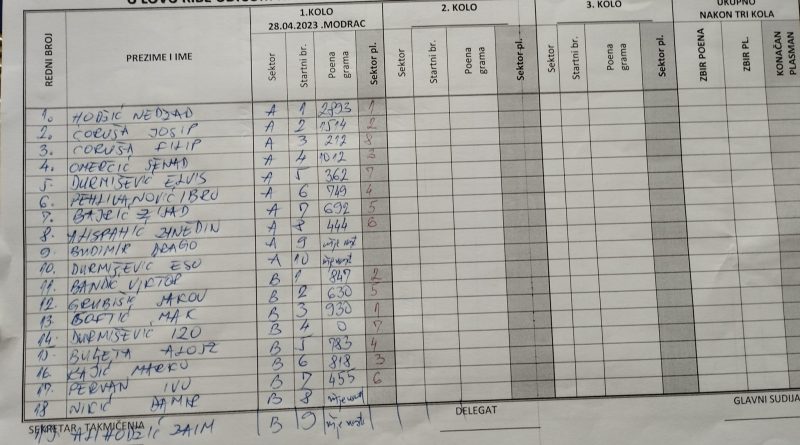 1.KOLO 2. KOLO 3. KOLO UKUPNO
28.04.2023 .MODRAC NAKON TRI KOLA
REDNI BROJ PREZIME I IME Sektor Startni br. Poena grama Sektor pl. Sektor Startni br. Poena grama Sektor pl. Sektor Startni br. Poena grama Sektor pl. ZBIR POENA ZBIR PL. KONAČAN PLASMAN
1. HODŽIĆ NEDJAD A 1 2893 1
2. ĆORUŠA JOSIP A 2 1514 2
3. ĆORUŠA FILIP A 3 212 8
4. OMERČIĆ SENAD A 4 1012 3
5. DURMIŠEVIĆ ELVIS A 5 362 7
6. PEHLIVANOVIĆ IBRO A 6 749 4
7. BAJRIĆ ZIJAD A 7 692 5
8. ALISPAHIĆ A 8 444 6
9. BUDIMIR DRAGO A 9 nije nast
10. DURMIŠEVIĆ ESO A 10 nije nast
11. BANDIĆ VIKTOR B 1 847 2
12. GRUBIŠIĆ JAKOV B 2 630 5
13. MAK B 3 930 1
14. DURMIŠEVIĆ IZO B 4 0 7
15. BULJETA ALOJZ B 5 783 4
16. RAJIĆ MARKO B 6 818 3
17. PERVAN IVO B 7 455 6
18 NIKIĆ DAMIR B 8 nije nast
19. ALIHODŽIĆ ZAIM B 9 nije nast
SEKRETAR TAKMIČENJA DELEGAT GLAVNI SUDIJA